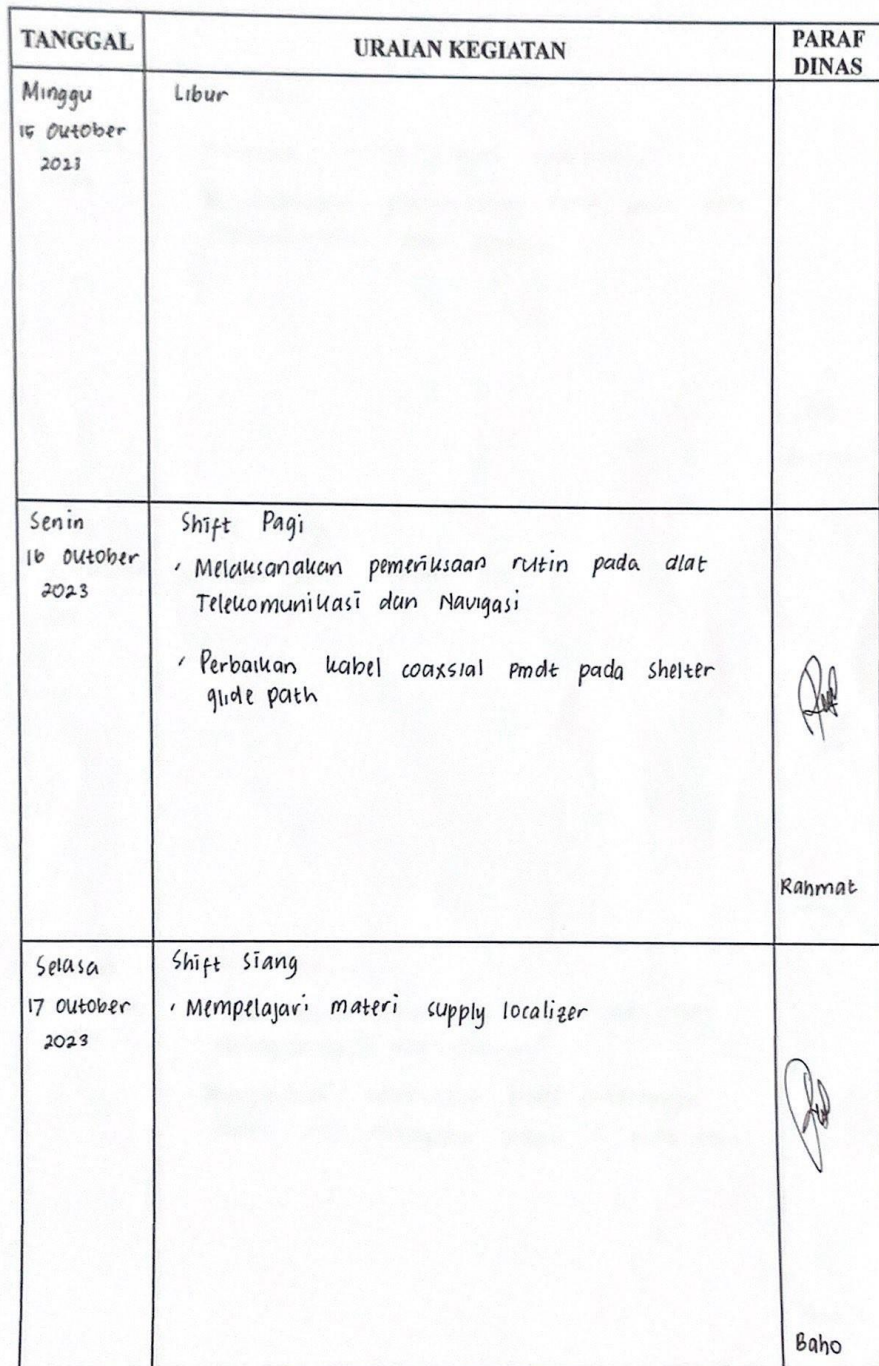 TANGGAL
URAIAN KEGIATAN
PARAF
DINAS
Minggu
15 Oktober
2023
Libur
Senin
16 Oktober
2023
Shift Pagi
Melaksanakan pemeriksaan rutin pada alat
Telekomunikasi dan Navigasi
Perbaikan kabel coaxsial pmdt pada shelter
glide path
Rahmat
Selasa
17 Oktober
2023
Shift Siang
Mempelajari materi supply localizer
Baho